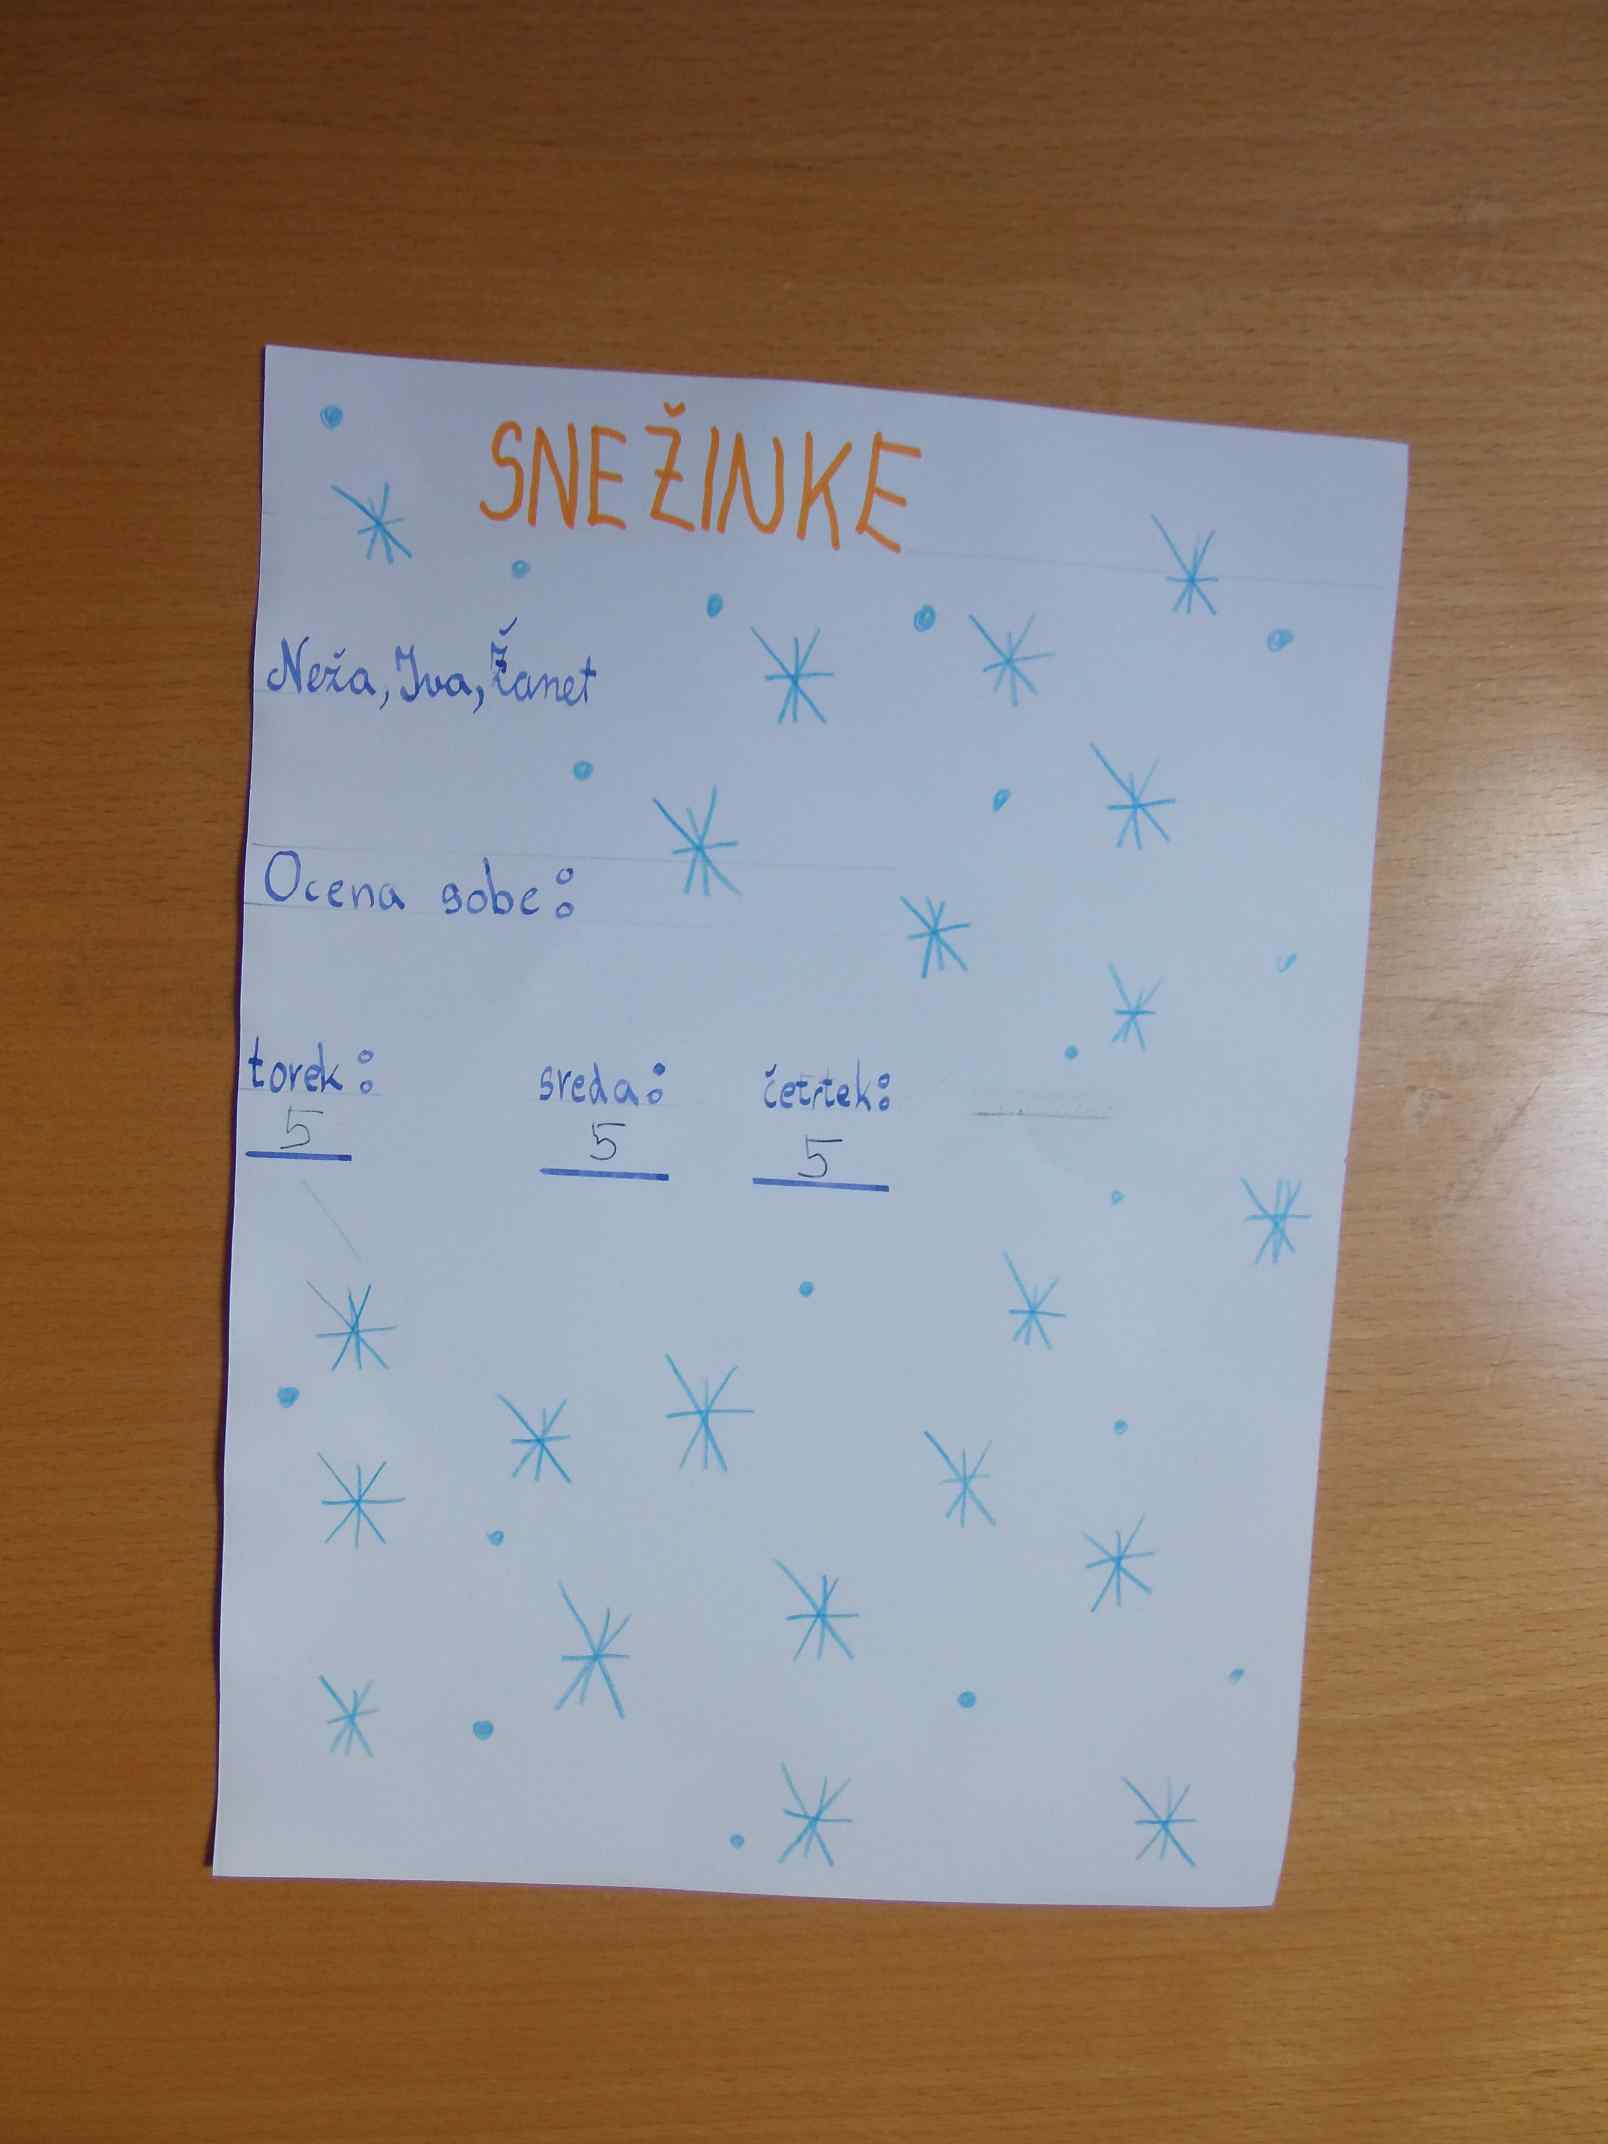 SNEŽINKE
Neža, Iva, Žanet
Ocena sobe:
torek: sreda: četrtek:
5 5 5